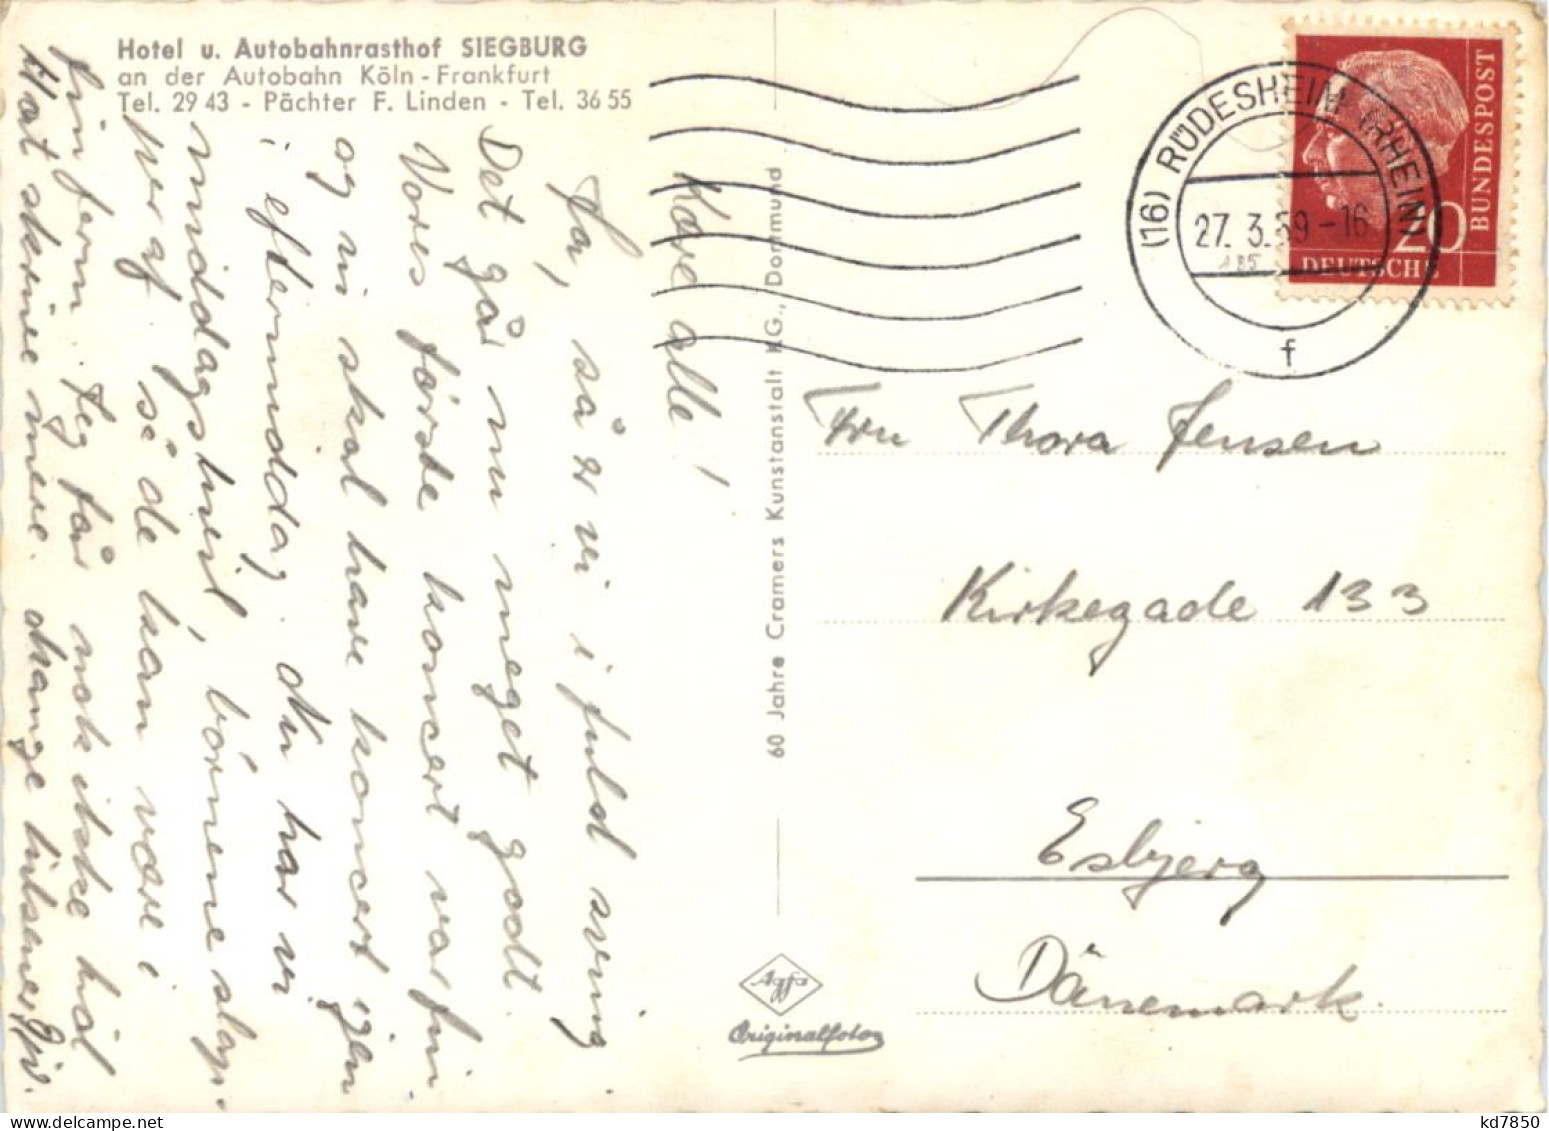 Hotel u. Autobahnrasthof SIEGBURG
an der Autobahn Köln - Frankfurt
Tel. 29 43 - Pächter F. Linden - Tel. 36 55
Kære alle!
Ja, så er vi i fuld sving
Det går nu meget godt.
Vores første koncert var fin
og vi skal have koncert igen
i eftermiddag. Nu har vi
middagshvil, børnene slap-
per af så de kan være i
fin form. Jeg får nok ikke tid
at skrive mere. Mange hilsener
60 Jahre Cramers Kunstanstalt KG., Dortmund
Agfa
Originalfoto
(16) RÜDESHEIM (RHEIN)
27. 3. 59 - 16
f
20
BUNDESPOST
DEUTSCHE
Fru Thora Jensen
Kirkegade 133
Esbjerg
Dänemark.
kd7850